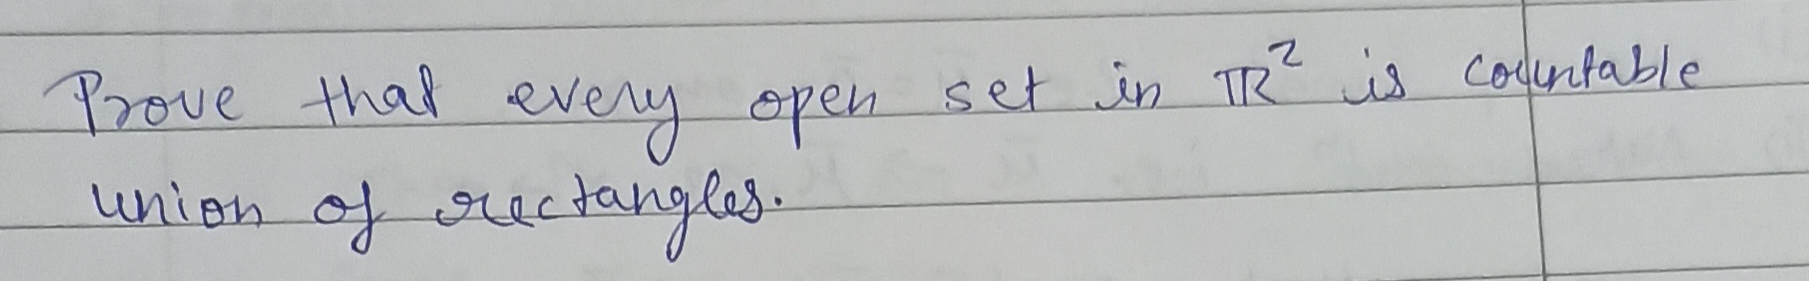 Prove that every open set in ℝ² is countable
union of rectangles.